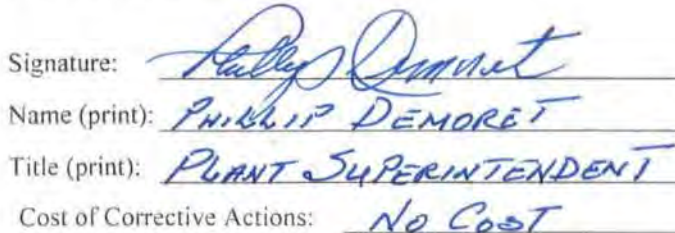 Signature: Phillip Demoret
Name (print): PHILLIP DEMORET
Title (print): PLANT SUPERINTENDENT
Cost of Corrective Actions: NO COST